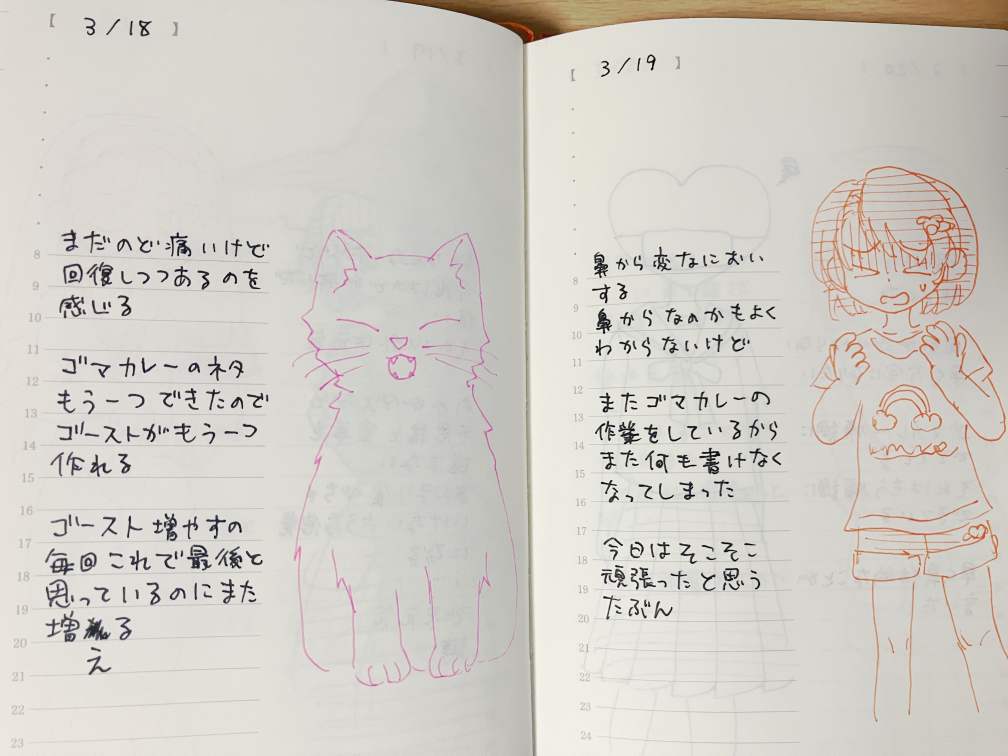 【 3/18 】
まだのど痛いけど
回復しつつあるのを
感じる
ゴマカレーのネタ
もう一つできたので
ゴーストがもう一つ
作れる
ゴースト増やすの
毎回これで最後と
思っているのにまた
増る
え
8
9
10
11
12
13
14
15
16
17
18
19
20
21
22
23
【 3/19 】
鼻から変なにおい
する
鼻からなのかもよく
わからないけど
またゴマカレーの
作業をしているから
また何も書けなく
なってしまった
今日はそこそこ
頑張ったと思う
たぶん
8
9
10
11
12
13
14
15
16
17
18
19
20
21
22
23
24